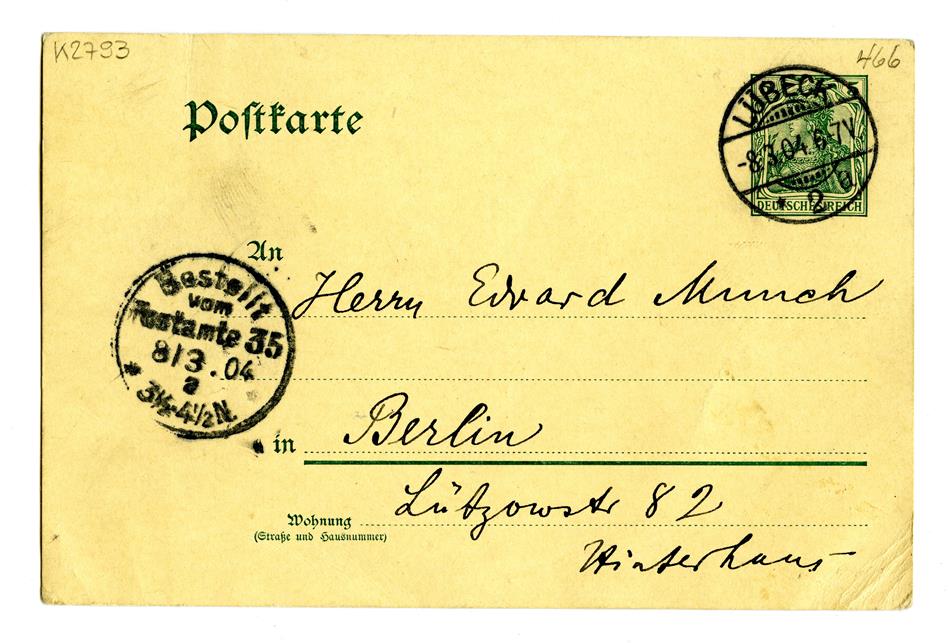 K2793
466
Postkarte
LÜBECK
-8.3.04.6-7V.
* 2 b
DEUTSCHES REICH
An
Herrn Edvard Munch
Bestellt
vom
Postamte 35
8/3.04
a
3½-4½N.
in Berlin
Lützowstr 82
Wohnung
(Straße und Hausnummer)
Hinterhaus